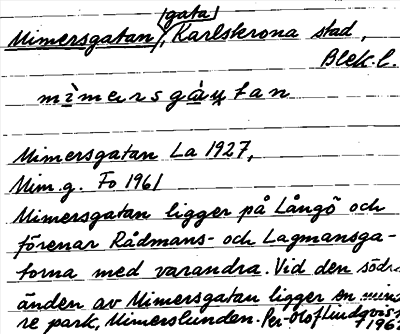 Mimersgatan /gata/, Karlskrona stad,
Blek. l.
mìmersgàtan
Mimersgatan La 1927,
Mim.g. Fo 1961
Mimersgatan ligger på Långö och
förenar Rådmans- och Lagmansga-
torna med varandra. Vid den södra
änden av Mimersgatan ligger en mind
re park, Mimerslunden. Per-Olof Lindqvist
1961